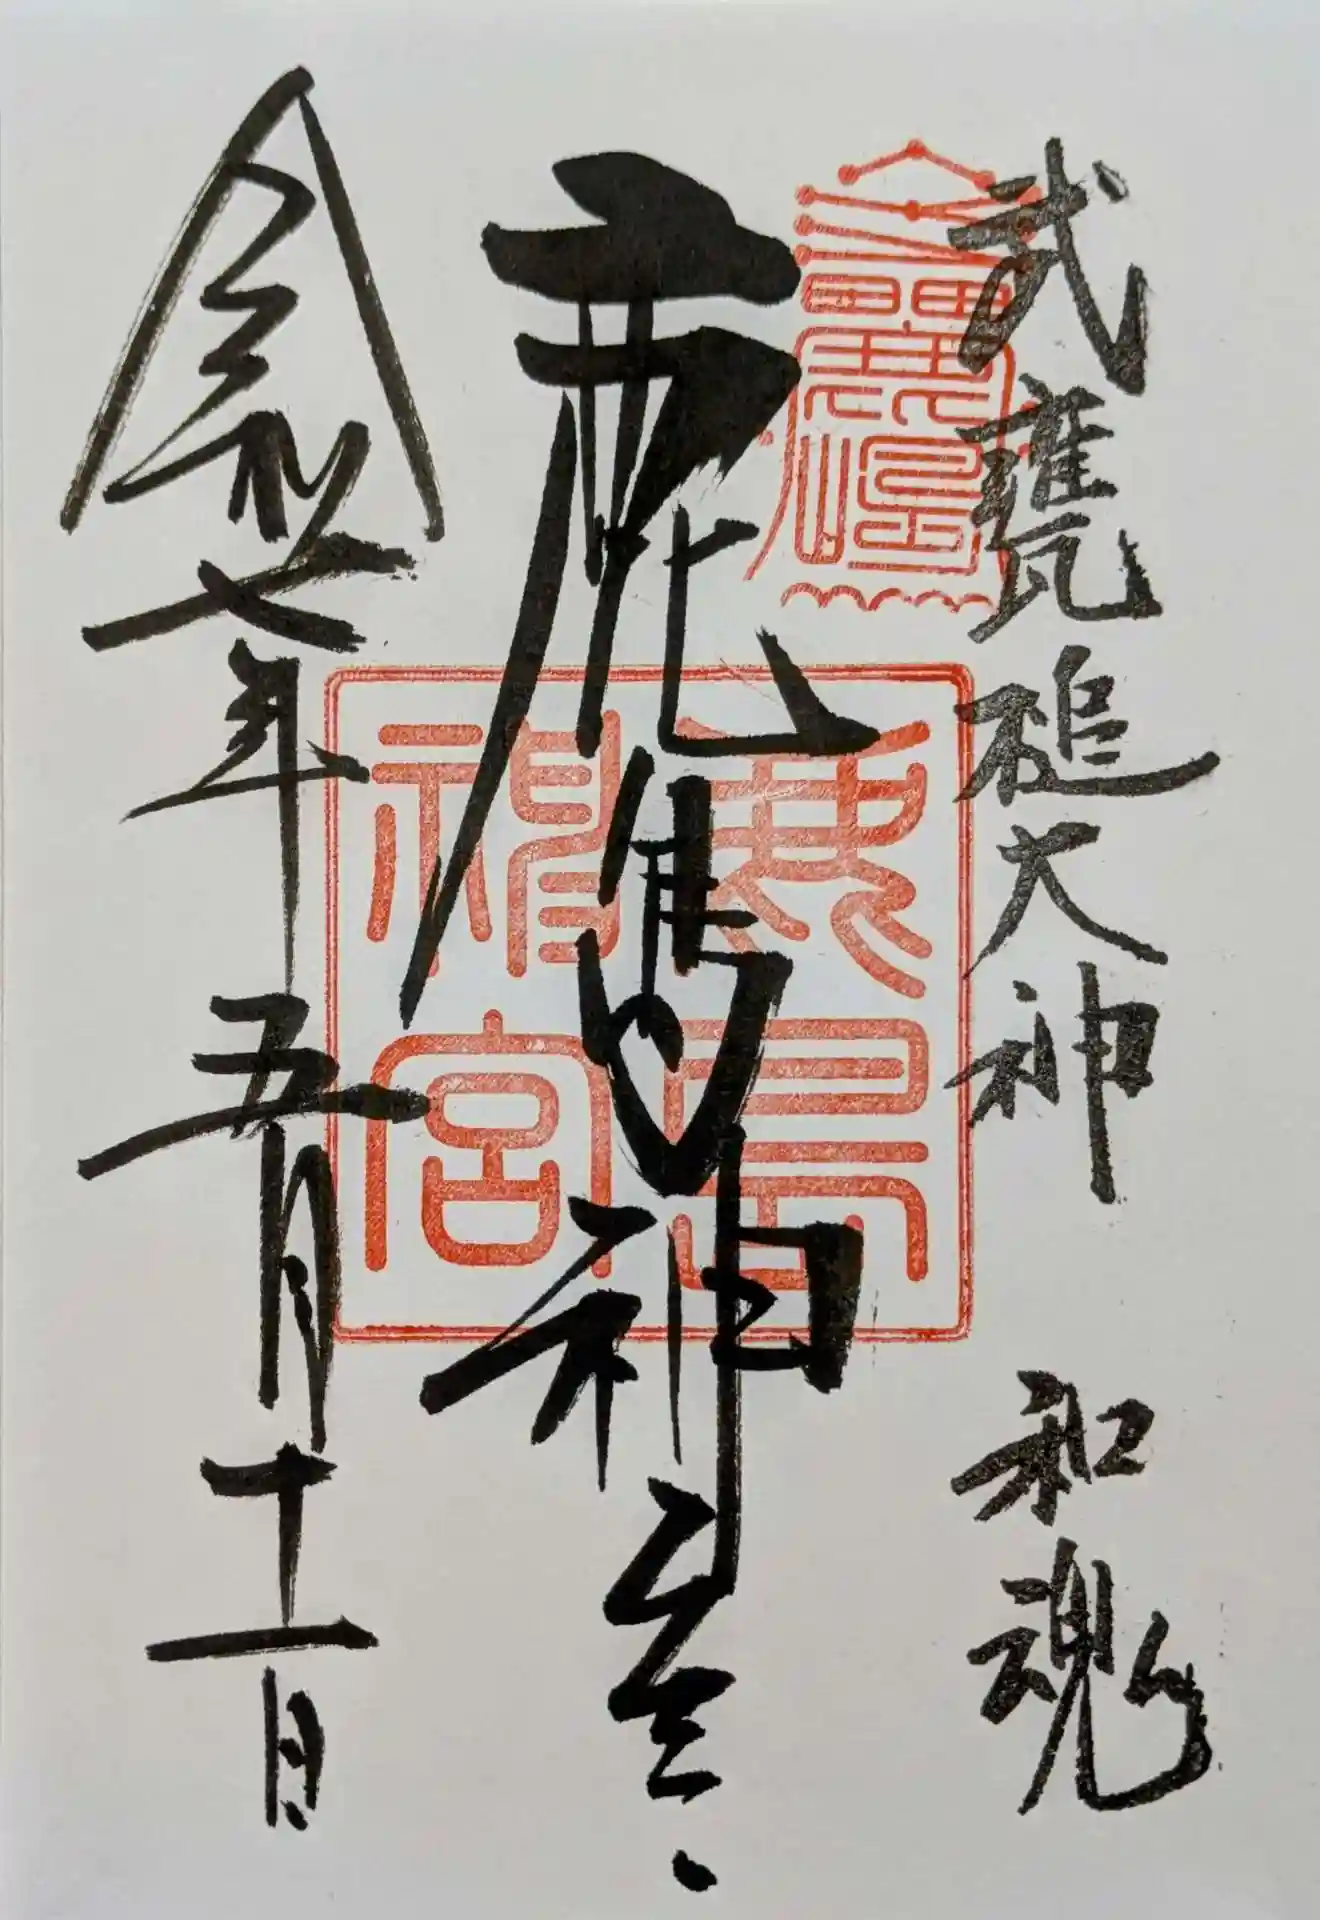 武甕槌大神 和魂
鹿島神宮
令和七年五月十一日
鹿島
神宮